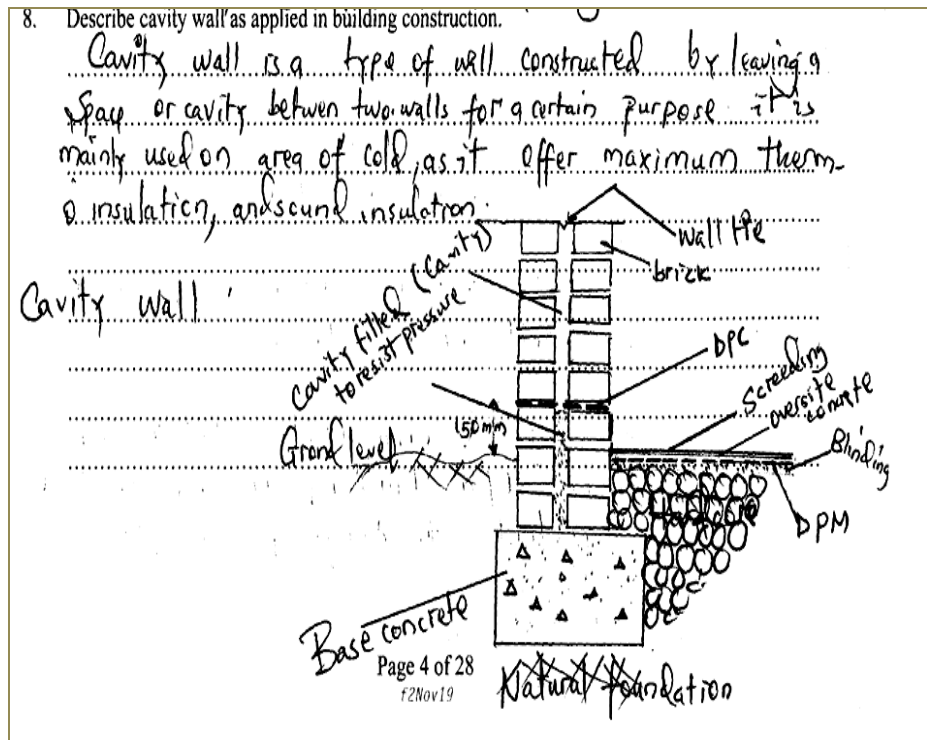 8. Describe cavity wall as applied in building construction.
Cavity wall is a type of wall constructed by leaving a
Space or cavity betwen two walls for a certain purpose it is
mainly used on area of cold, as it offer maximum therm-
o insulation, and sound insulation.
wall tie
brick
Cavity wall
Cavity filled (Cavity)
to resist pressure
DPC
Screeding
oversite
concrete
150mm
Ground level
Blinding
Hardcore
DPM
Base concrete
Page 4 of 28
f2Nov19
Natural foundation